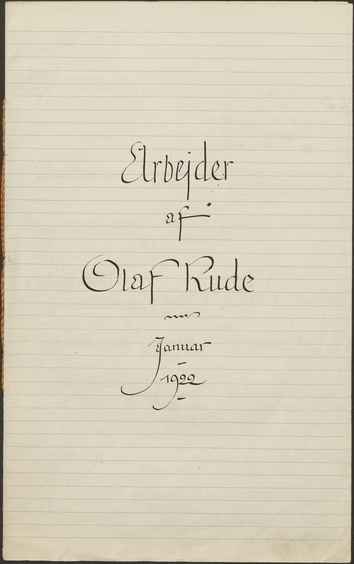 Arbejder
af
Olaf Rude
Januar
1922